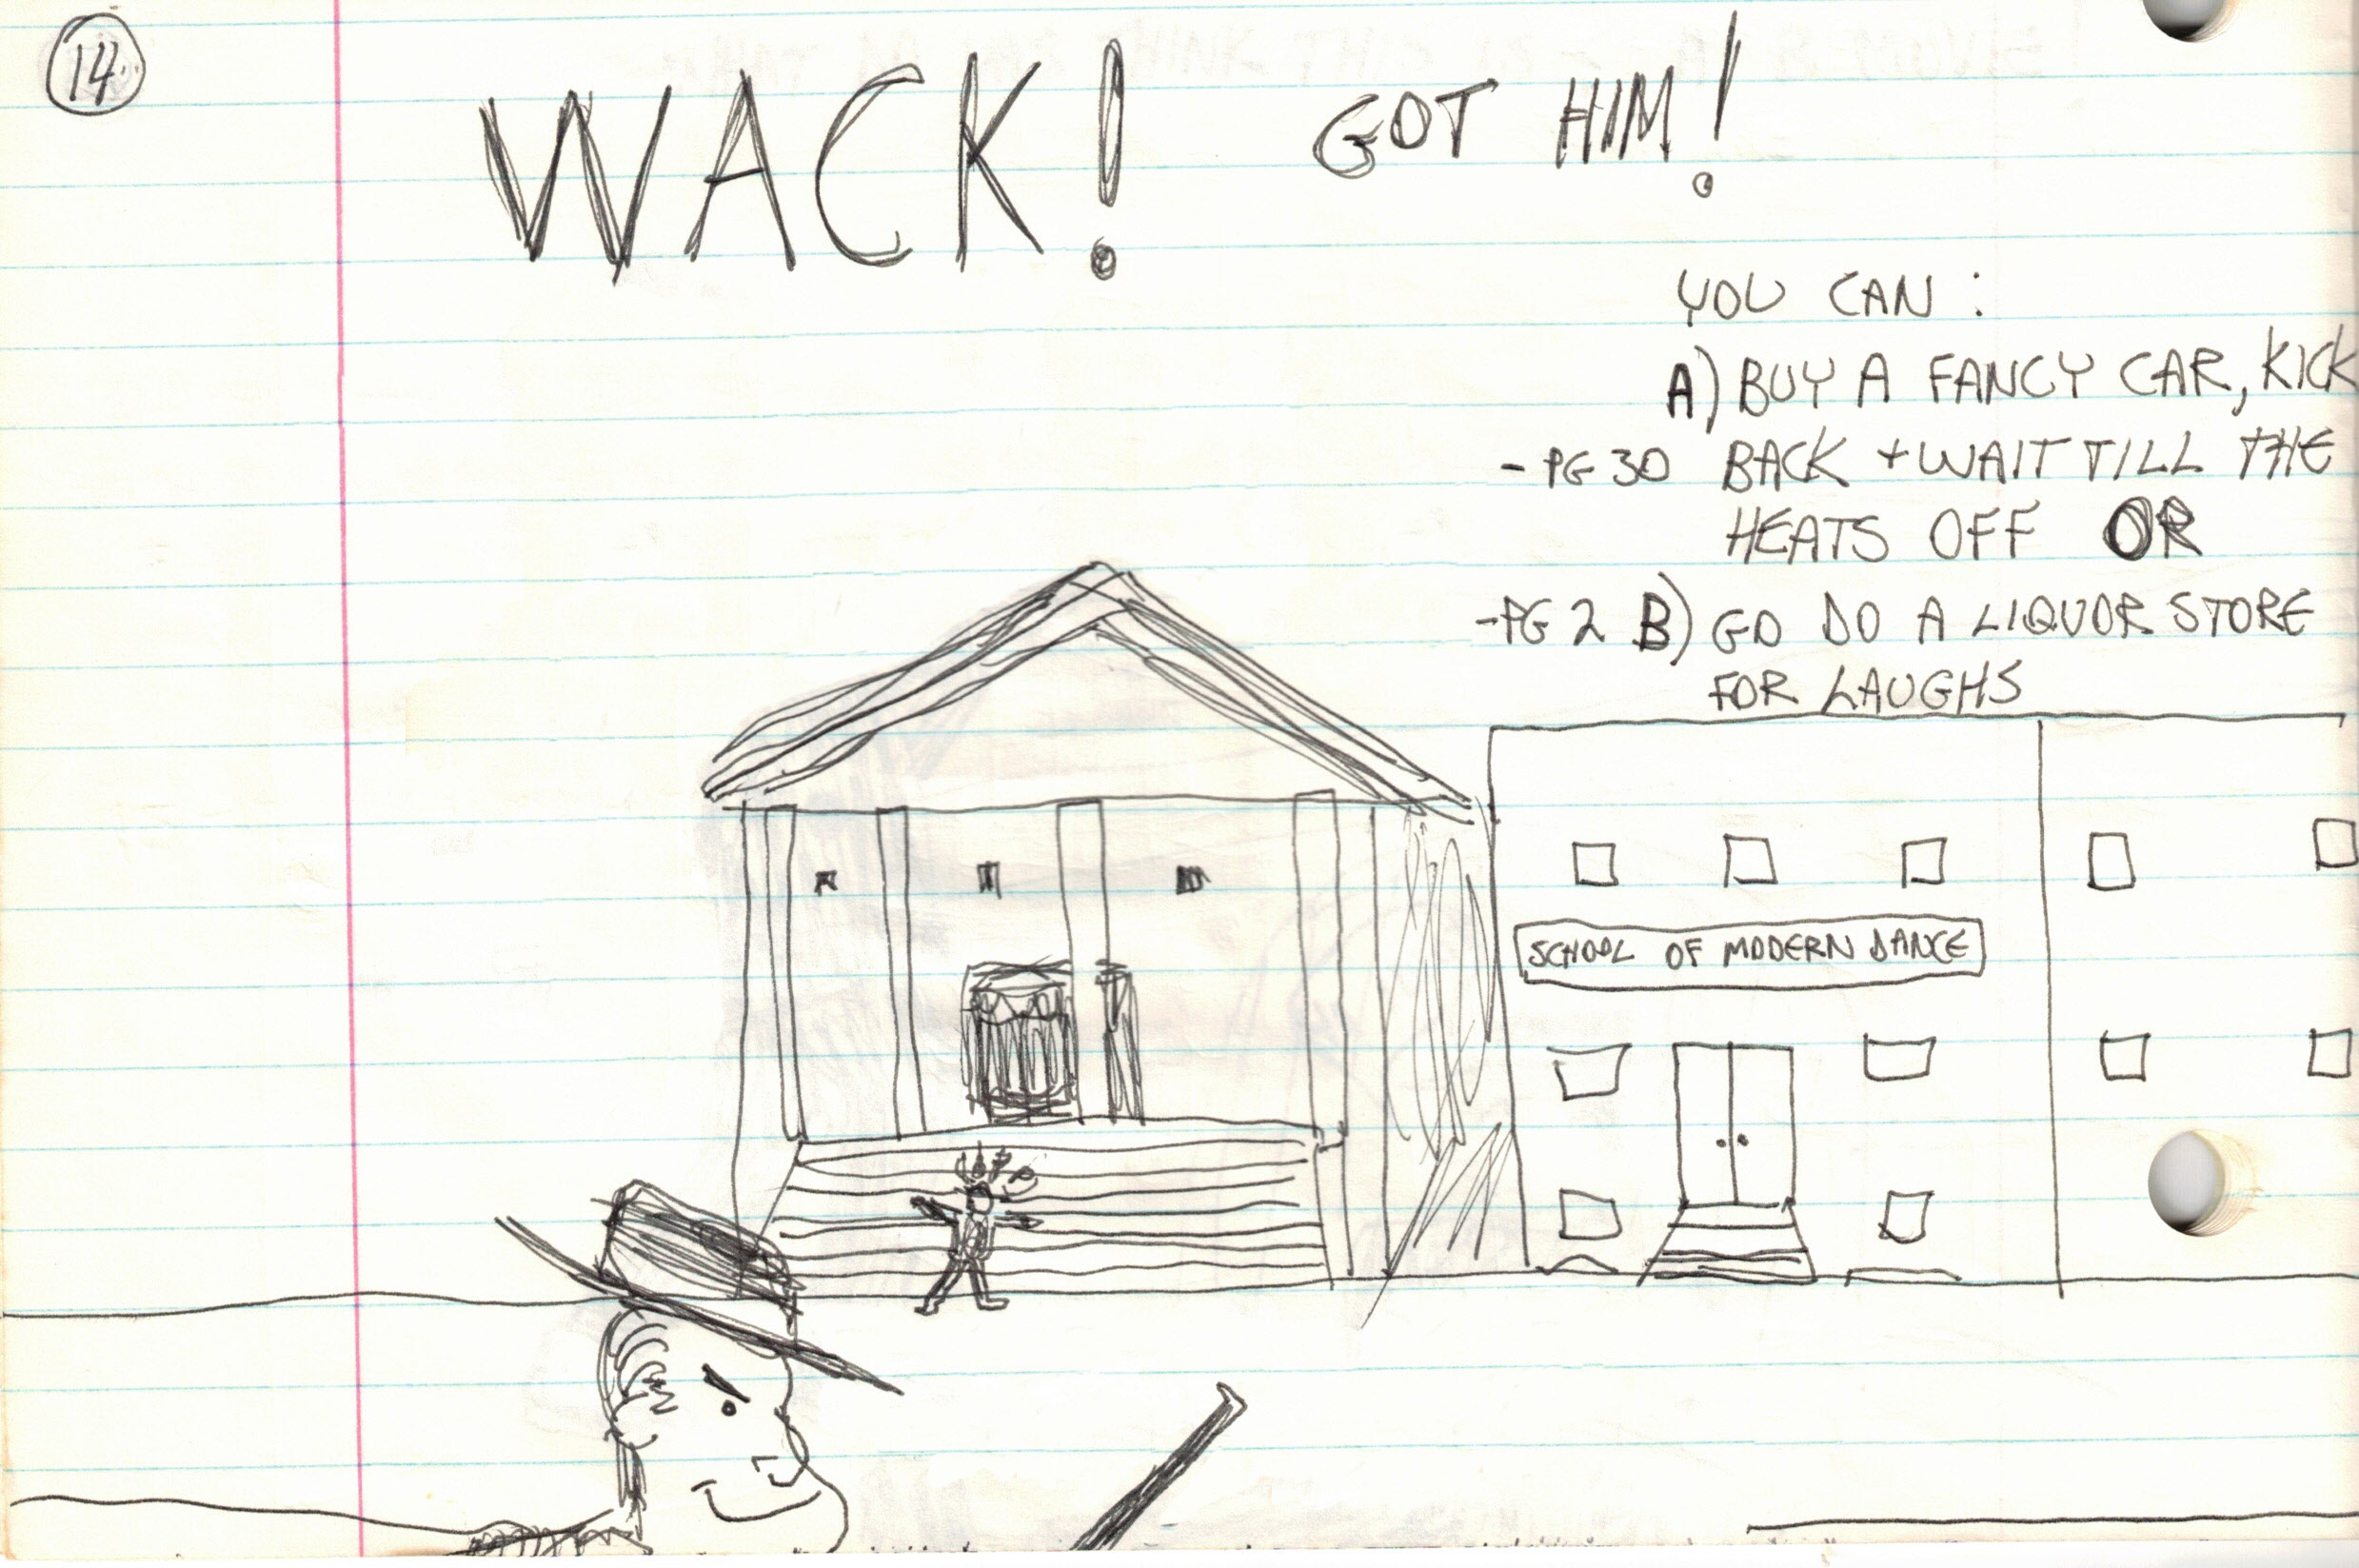 14
WACK! GOT HIM!
YOU CAN:
A) BUY A FANCY CAR, KICK
-PG 30 BACK + WAIT TILL THE
HEATS OFF OR
-PG 2 B) GO DO A LIQUOR STORE
FOR LAUGHS
SCHOOL OF MODERN DANCE